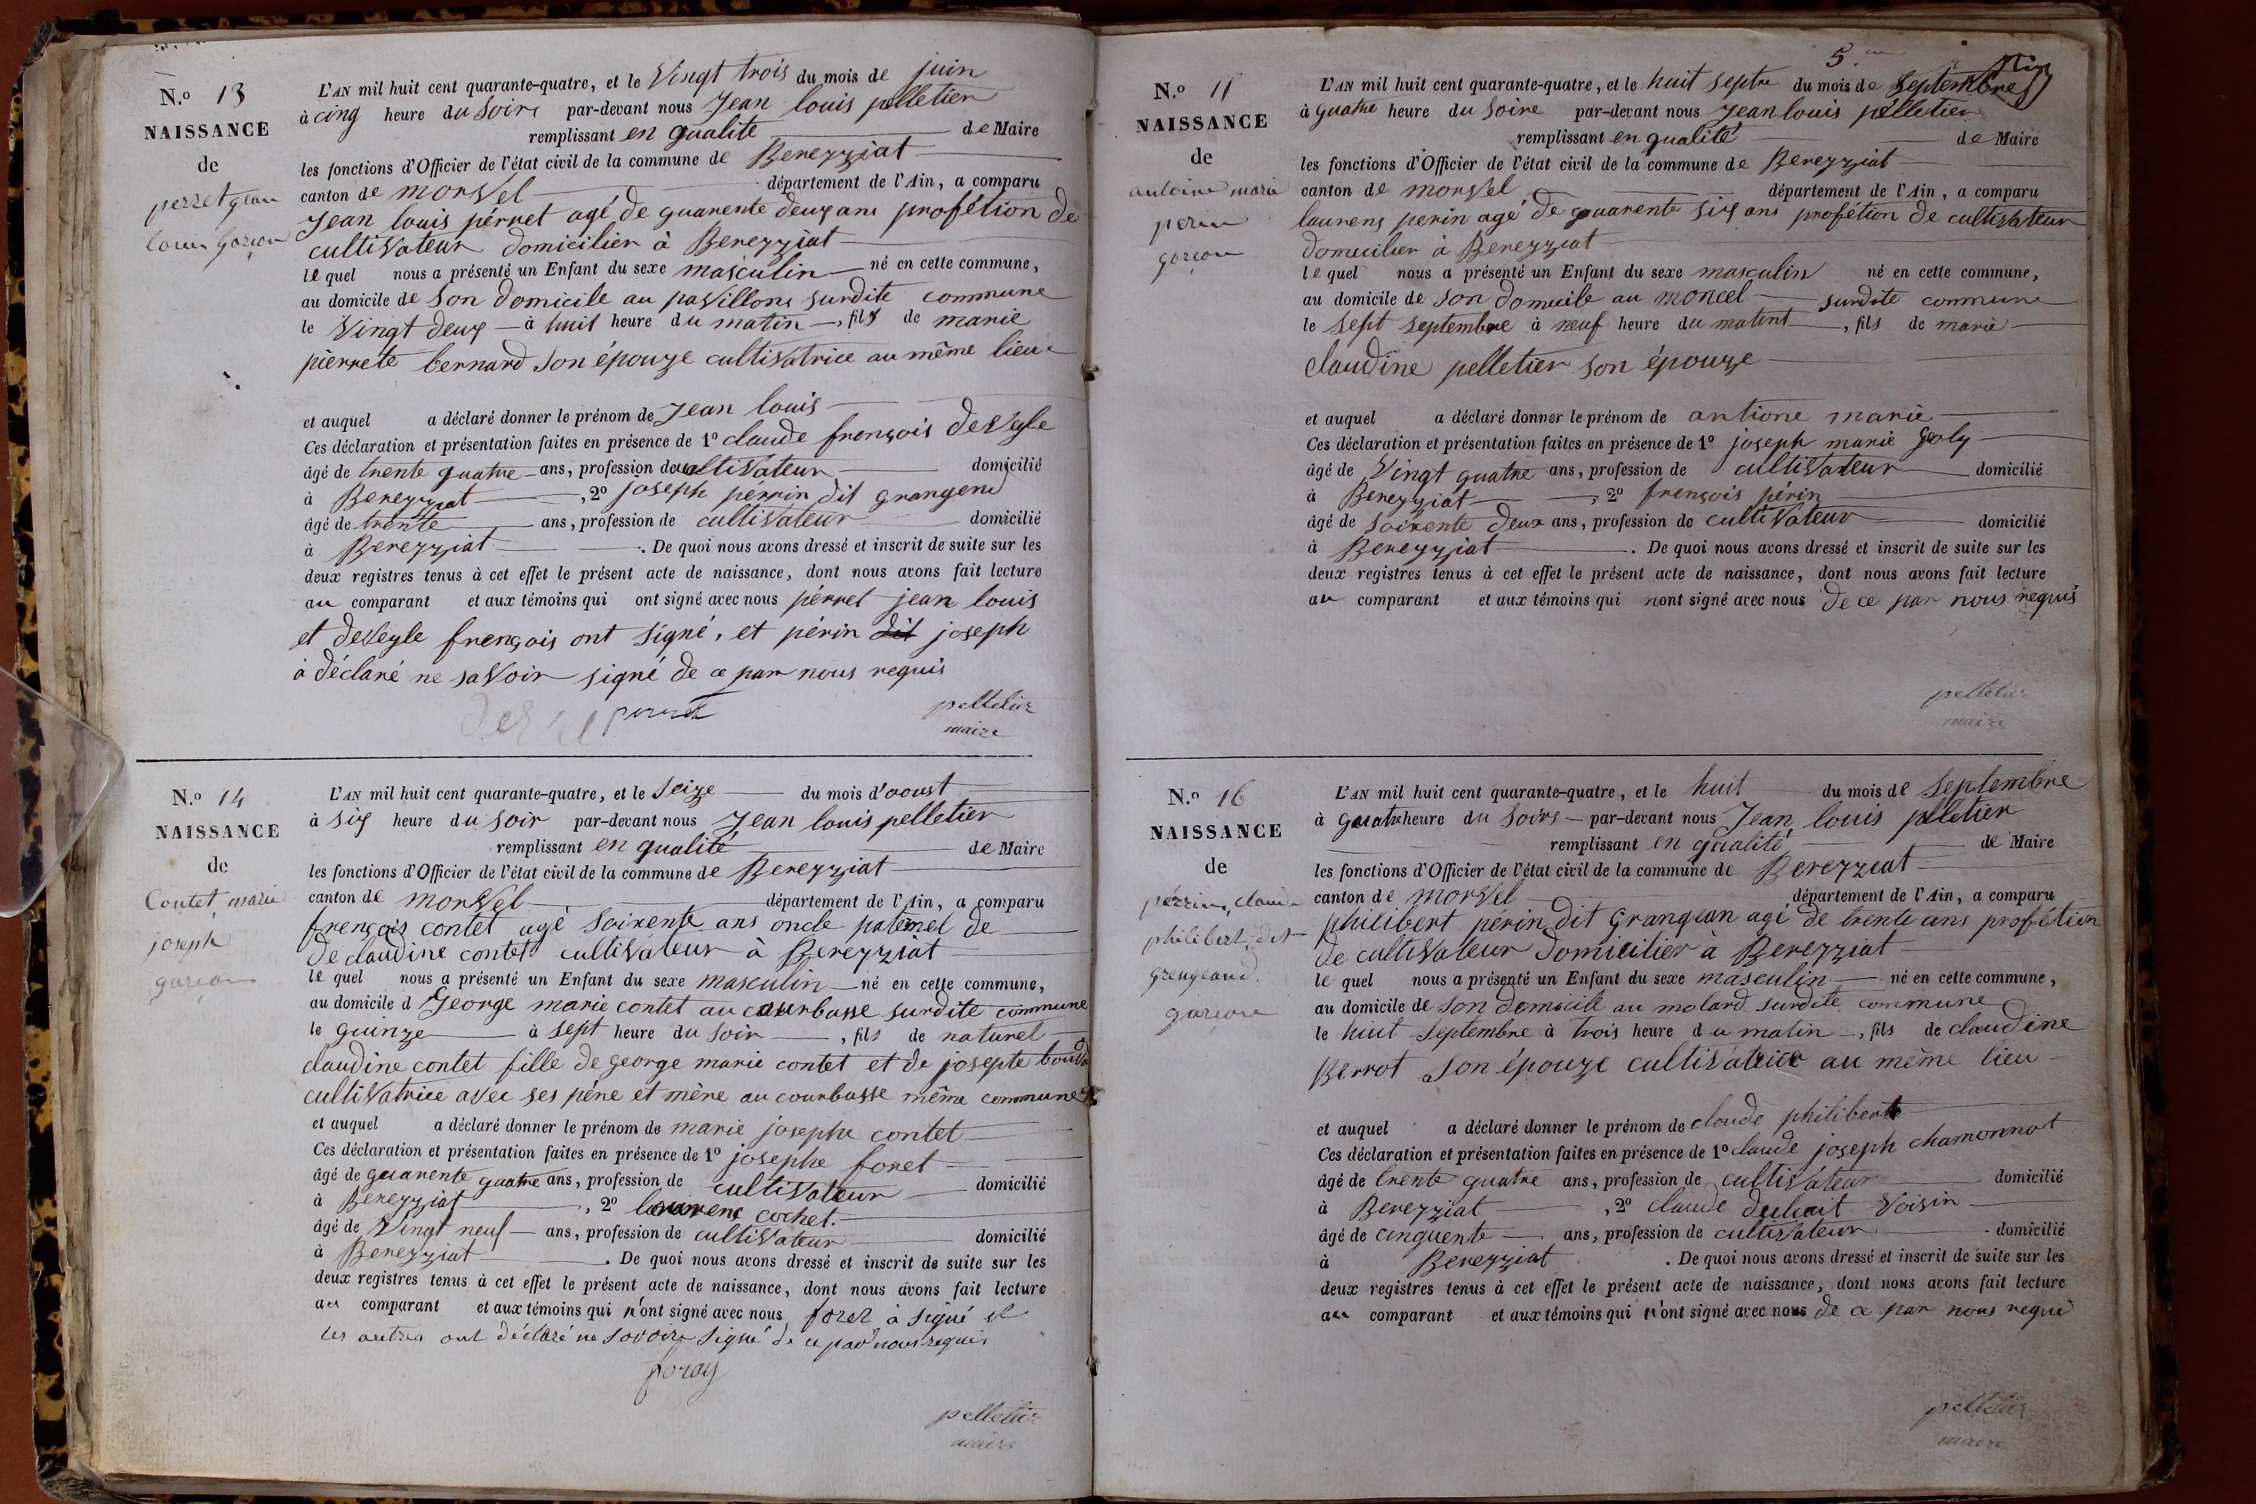 N.o 13
NAISSANCE
de
perret jean
louis garçon
L'AN mil huit cent quarante-quatre, et le vingt trois du mois de juin
à cinq heure du soire par-devant nous Jean louis pelletier
remplissant en qualité de Maire
les fonctions d'Officier de l'état civil de la commune de Berezziat
canton de monvel département de l'Ain, a comparu
Jean louis pérret agé de quarente deux ans profétion de
cultivateur domicilier à Berezziat
le quel nous a présenté un Enfant du sexe masculin né en cette commune,
au domicile de son domicile au pavillons surdite commune
le vingt deux à huit heure du matin, fils de marie
pierrete bernard son épouze cultivatrice au même lieu
et auquel a déclaré donner le prénom de Jean louis
Ces déclaration et présentation faites en présence de 1o claude françois develle
âgé de trente quatre ans, profession de cultivateur domicilié
à Berezziat, 2o joseph périn dit grangend
âgé de trente ans, profession de cultivateur domicilié
à Berezziat. De quoi nous avons dressé et inscrit de suite sur les
deux registres tenus à cet effet le présent acte de naissance, dont nous avons fait lecture
au comparant et aux témoins qui ont signé avec nous pérret jean louis
et françois ont signé, et périn dit joseph
à déclaré ne savoir signé de ce par nous requis
perret
pelletier
maire
N.o 14
NAISSANCE
de
Contet, marie
joseph
garçon
L'AN mil huit cent quarante-quatre, et le seize du mois d'aoust
à six heure du soir par-devant nous Jean louis pelletier
remplissant en qualité de Maire
les fonctions d'Officier de l'état civil de la commune de Berezziat
canton de monvel département de l'Ain, a comparu
françois contet agé soixente ans oncle paternel de
de claudine contet cultivateur à Berezziat
le quel nous a présenté un Enfant du sexe masculin né en cette commune,
au domicile d George marie contet au courbasse surdite commune
le quinze à sept heure du soir, fils de naturel
claudine contet fille de george marie contet et de josepte
cultivatrice avec ses père et mère au courbasse même commune
et auquel a déclaré donner le prénom de marie josephe contet
Ces déclaration et présentation faites en présence de 1o josephe foret
âgé de quarente quatre ans, profession de cultivateur domicilié
à Berezziat, 2o laurenc cochet.
âgé de vingt neuf ans, profession de cultivateur domicilié
à Berezziat. De quoi nous avons dressé et inscrit de suite sur les
deux registres tenus à cet effet le présent acte de naissance, dont nous avons fait lecture
au comparant et aux témoins qui n'ont signé avec nous foret à signé et
les autres ont déclaré ne savoir signé de ce par nous requis
foray
pelletier
maire
5
N.o 15
NAISSANCE
de
antoine marie
perin
garçon
L'AN mil huit cent quarante-quatre, et le huit septre du mois de septembre
à quatre heure du soire par-devant nous Jean louis pélletier
remplissant en qualité de Maire
les fonctions d'Officier de l'état civil de la commune de Berezziat
canton de monvel département de l'Ain, a comparu
laurens perin agé de quarente six ans profétion de cultivateur
domicilier à Berezziat
le quel nous a présenté un Enfant du sexe masculin né en cette commune,
au domicile de son domicile au moncel surdite commune
le sept septembre à neuf heure du matint, fils de marie
claudine pelletier son épouze
et auquel a déclaré donner le prénom de antione marie
Ces déclaration et présentation faites en présence de 1o joseph marie goly
âgé de vingt quatre ans, profession de cultivateur domicilié
à Berezziat, 2o françois périn
âgé de soixente deux ans, profession de cultivateur domicilié
à Berezziat. De quoi nous avons dressé et inscrit de suite sur les
deux registres tenus à cet effet le présent acte de naissance, dont nous avons fait lecture
au comparant et aux témoins qui nont signé avec nous de ce par nous requis
pelletier
maire
N.o 16
NAISSANCE
de
périn, claude
philibert, dit
grengeand.
garçon
L'AN mil huit cent quarante-quatre, et le huit du mois de septembre
à quatre heure du soire par-devant nous Jean louis plletier
remplissant en qualité de Maire
les fonctions d'Officier de l'état civil de la commune de Berezziat
canton de monvel département de l'Ain, a comparu
philibert périn dit Grangean agé de trente ans profétion
de cultivateur domicilier à Berezziat
le quel nous a présenté un Enfant du sexe masculin né en cette commune,
au domicile de son domicile au molard surdite commune
le huit septembre à trois heure du matin, fils de claudine
Berrot son épouze cultivatrice au même lieu
et auquel a déclaré donner le prénom de claude philiberte
Ces déclaration et présentation faites en présence de 1o claude joseph chamonnot
âgé de trente quatre ans, profession de cultivateur domicilié
à Berezziat, 2o claude duhait voisin
âgé de cinquente ans, profession de cultivateur domicilié
à Berezziat. De quoi nous avons dressé et inscrit de suite sur les
deux registres tenus à cet effet le présent acte de naissance, dont nous avons fait lecture
au comparant et aux témoins qui n'ont signé avec nous de ce par nous requi
pelletier
maire